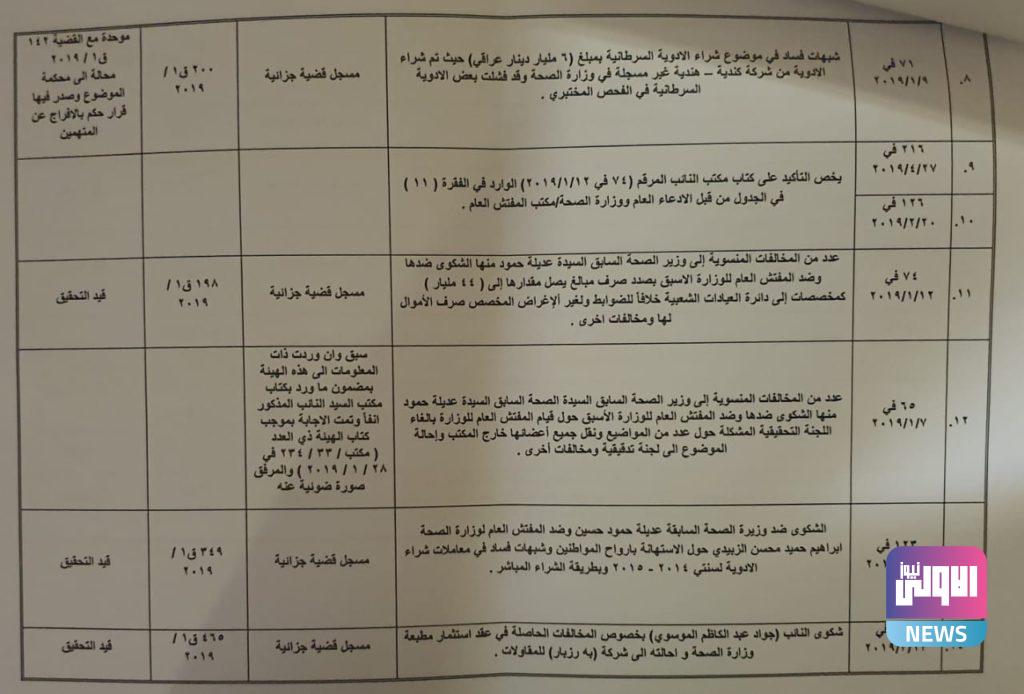 ٨.
٧١ في
٢٠١٩/١/٩
شبهات فساد في موضوع شراء الادوية السرطانية بمبلغ (٦ مليار دينار عراقي) حيث تم شراء
الادوية من شركة كندية – هندية غير مسجلة في وزارة الصحة وقد فشلت بعض الادوية
السرطانية في الفحص المختبري .
مسجل قضية جزائية
٢٠٠ ق١ /
٢٠١٩
موحدة مع القضية ١٤٢
ق١ / ٢٠١٩
محالة الى محكمة
الموضوع وصدر فيها
قرار حكم بالافراج عن
المتهمين
٩.
٢١٦ في
٢٠١٩/٤/٢٧
يخص التأكيد على كتاب مكتب النائب المرقم (٧٤ في ٢٠١٩/١/١٢) الوارد في الفقرة ( ١١ )
في الجدول من قبل الادعاء العام ووزارة الصحة/مكتب المفتش العام .
١٠.
١٢٦ في
٢٠١٩/٢/٢٠
١١.
٧٤ في
٢٠١٩/١/١٢
عدد من المخالفات المنسوبة إلى وزير الصحة السابق السيدة عديلة حمود منها الشكوى ضدها
وضد المفتش العام للوزارة الاسبق بصدد صرف مبالغ يصل مقدارها إلى ( ٤٤ مليار )
كمخصصات إلى دائرة العيادات الشعبية خلافاً للضوابط ولغير الإغراض المخصص صرف الأموال
لها ومخالفات اخرى .
مسجل قضية جزائية
١٩٨ ق١ /
٢٠١٩
قيد التحقيق
١٢.
٦٥ في
٢٠١٩/١/٧
عدد من المخالفات المنسوبة إلى وزير الصحة السابق السيدة الصحة السابق السيدة عديلة حمود
منها الشكوى ضدها وضد المفتش العام للوزارة الأسبق حول قيام المفتش العام للوزارة بالغاء
اللجنة التحقيقية المشكلة حول عدد من المواضيع ونقل جميع أعضائها خارج المكتب وإحالة
الموضوع الى لجنة تدقيقية ومخالفات أخرى .
سبق وان وردت ذات
المعلومات الى هذه الهيئة
بمضمون ما ورد بكتاب
مكتب السيد النائب المذكور
انفاً وتمت الاجابة بموجب
كتاب الهيئة ذي العدد
( مكتب / ٣٣ / ٢٣٤ في
٢٨ / ١ / ٢٠١٩ ) والمرفق
صورة ضوئية عنه
١٢٣ في
الشكوى ضد وزيرة الصحة السابقة عديلة حمود حسين وضد المفتش العام لوزارة الصحة
ابراهيم حميد محسن الزبيدي حول الاستهانة بارواح المواطنين وشبهات فساد في معاملات شراء
الادوية لسنتي ٢٠١٤ - ٢٠١٥ وبطريقة الشراء المباشر .
مسجل قضية جزائية
٣٤٩ ق١ /
٢٠١٩
قيد التحقيق
شكوى النائب (جواد عبد الكاظم الموسوي) بخصوص المخالفات الحاصلة في عقد استثمار مطبعة
وزارة الصحة و احالته الى شركة (به رزبار) للمقاولات .
مسجل قضية جزائية
٤٦٥ ق١ /
٢٠١٩
قيد التحقيق
الاولى نيوز
NEWS